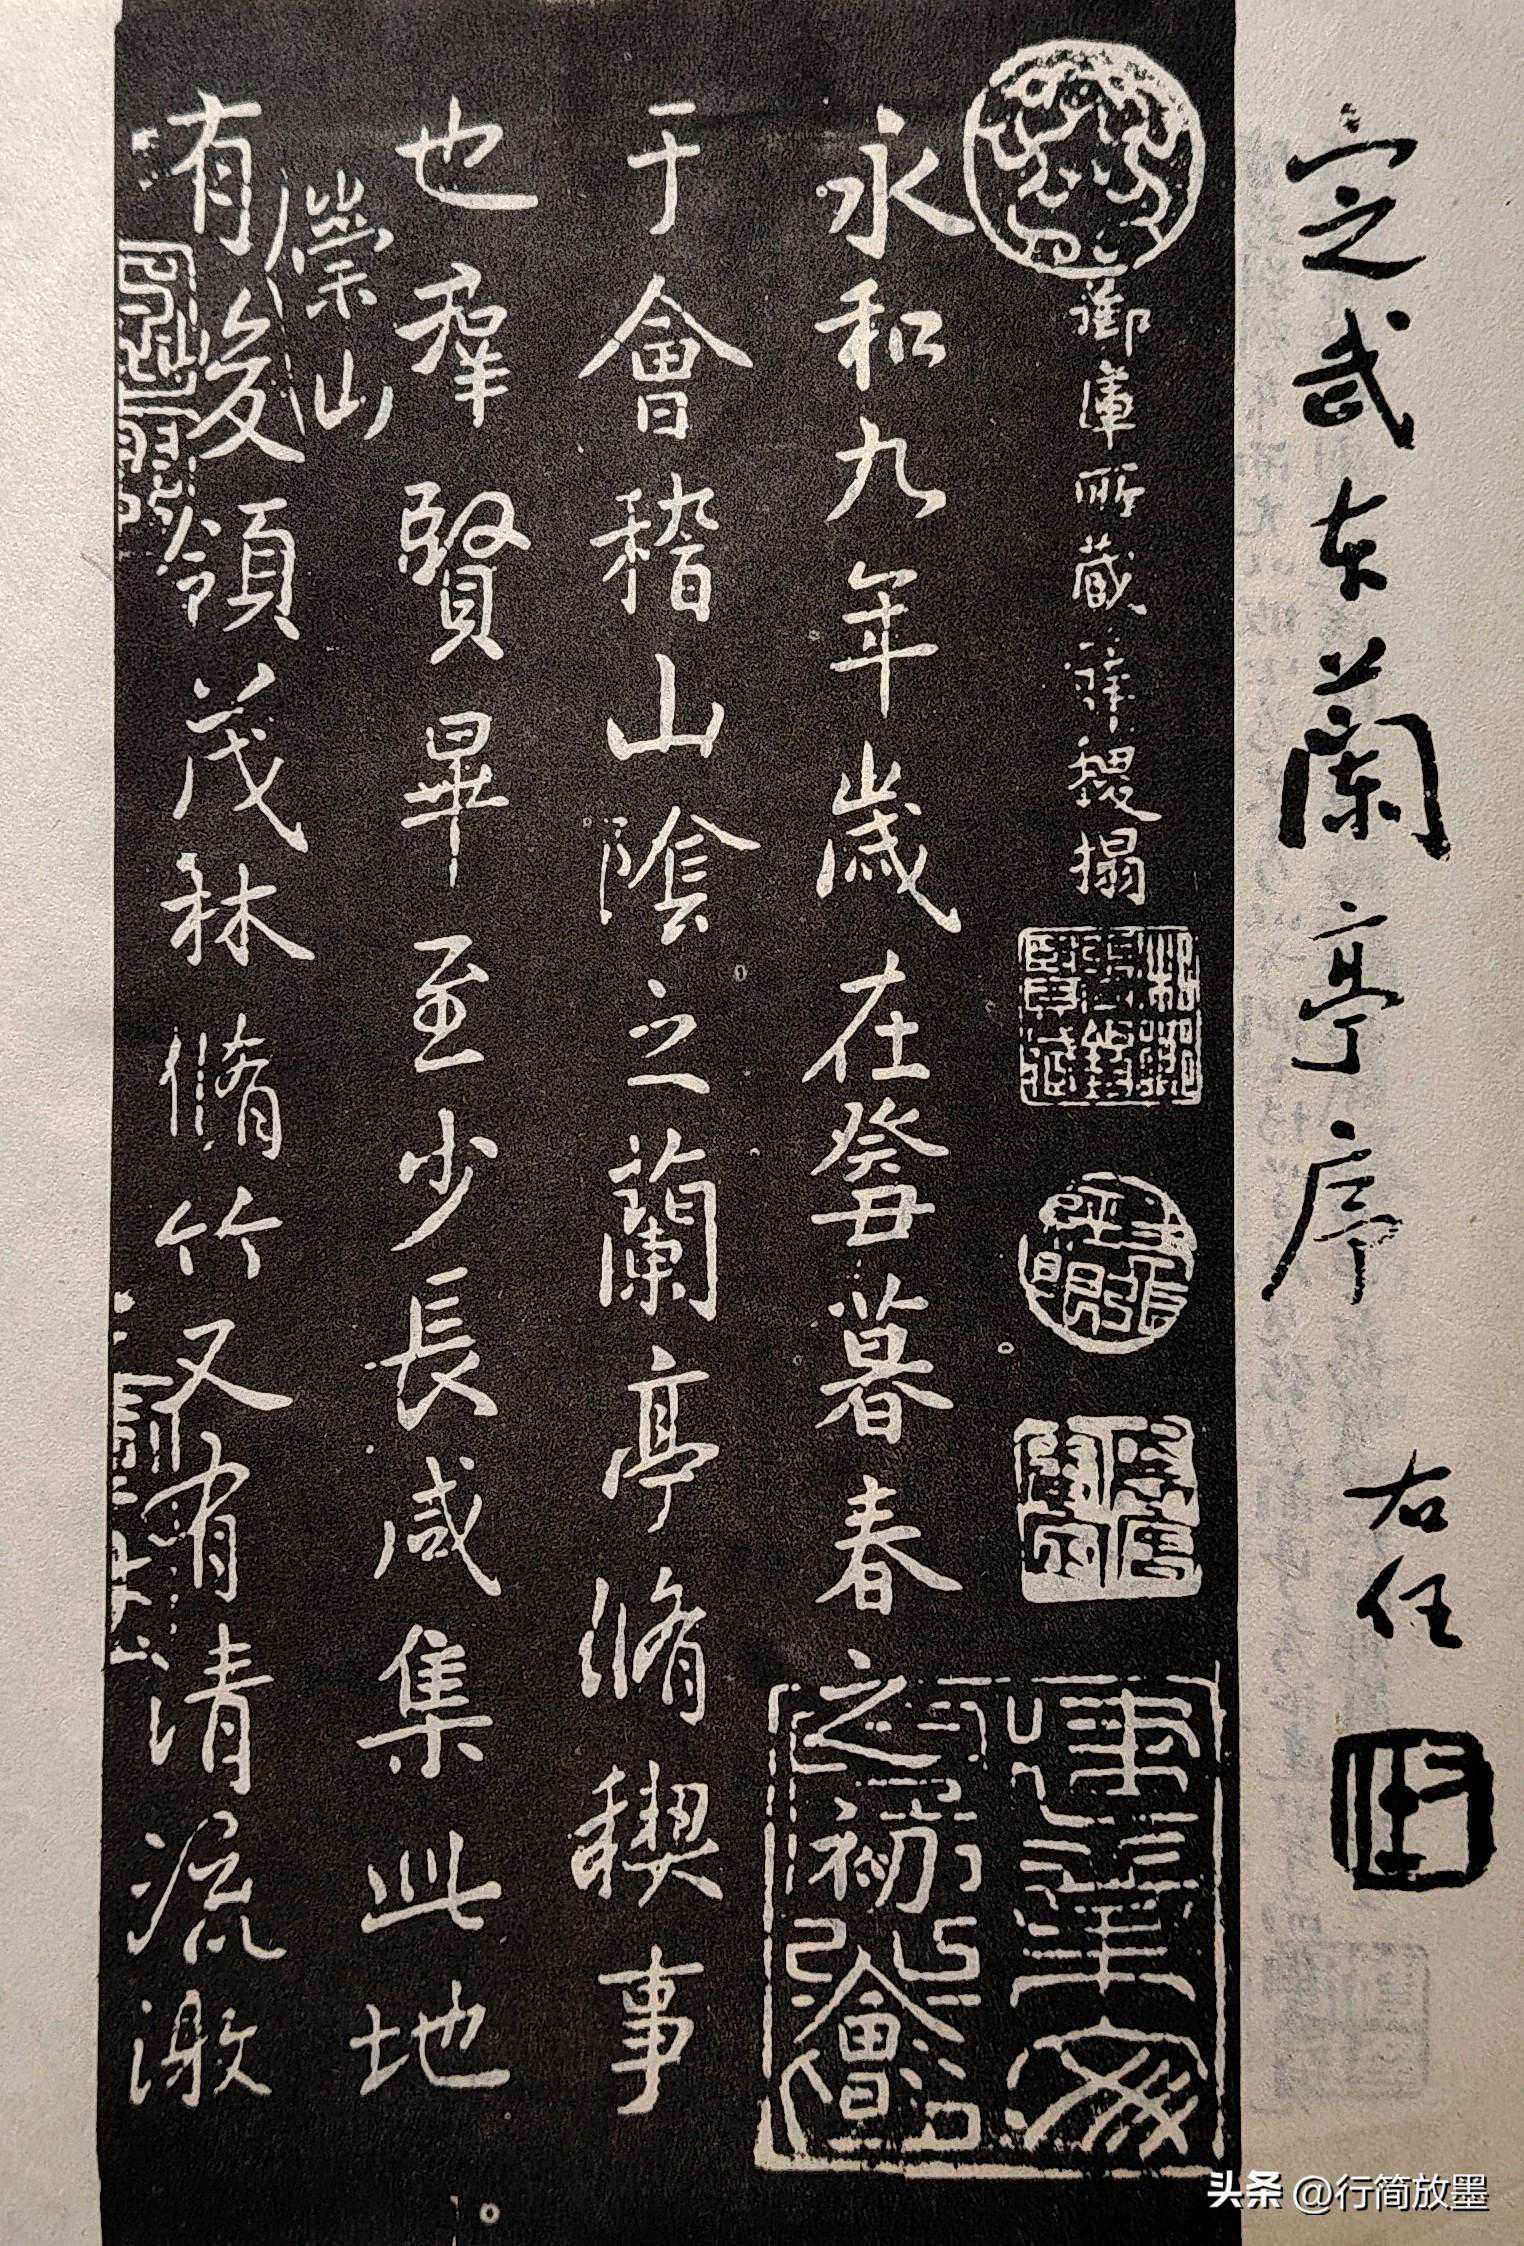 定武本蘭亭序
右任
御庫所藏薛稷搨
永和九年歲在癸丑暮春之初會
于會稽山陰之蘭亭脩稧事
也羣賢畢至少長咸集此地
崇山
有峻領茂林脩竹又有清流激
头条 @行简放墨